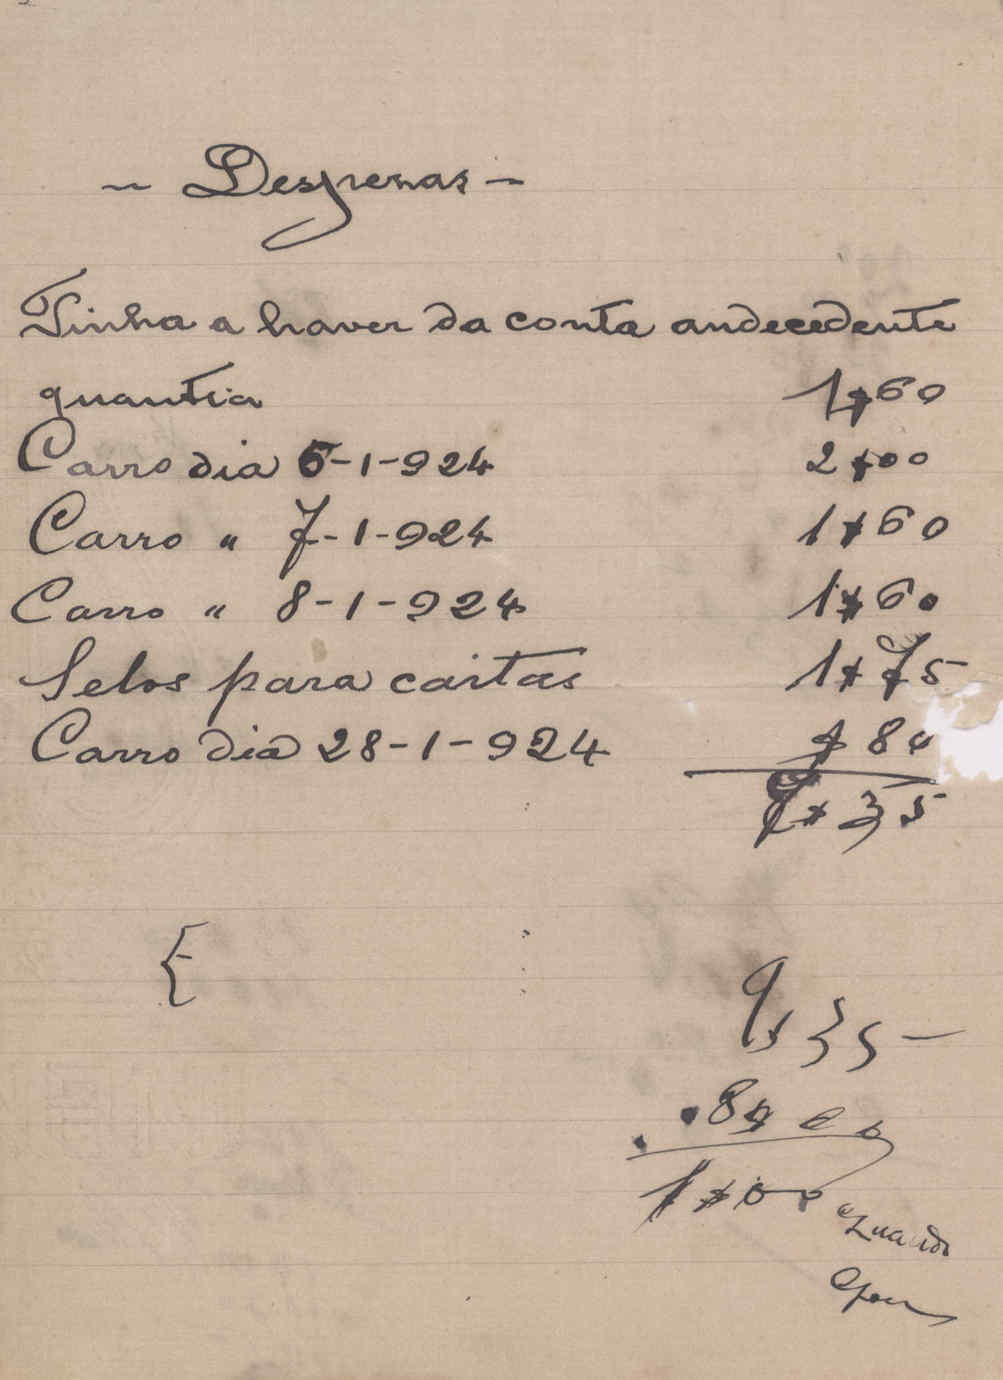 ~ Despezas –
Tinha a haver da conta andecedente
quantia 1$60
Carro dia 5-1-924 2$00
Carro " 7-1-924 1$60
Carro " 8-1-924 1$60
Selos para cartas 1$75
Carro dia 28-1-924 $80
9$35
9$35 –
8$00
1$00